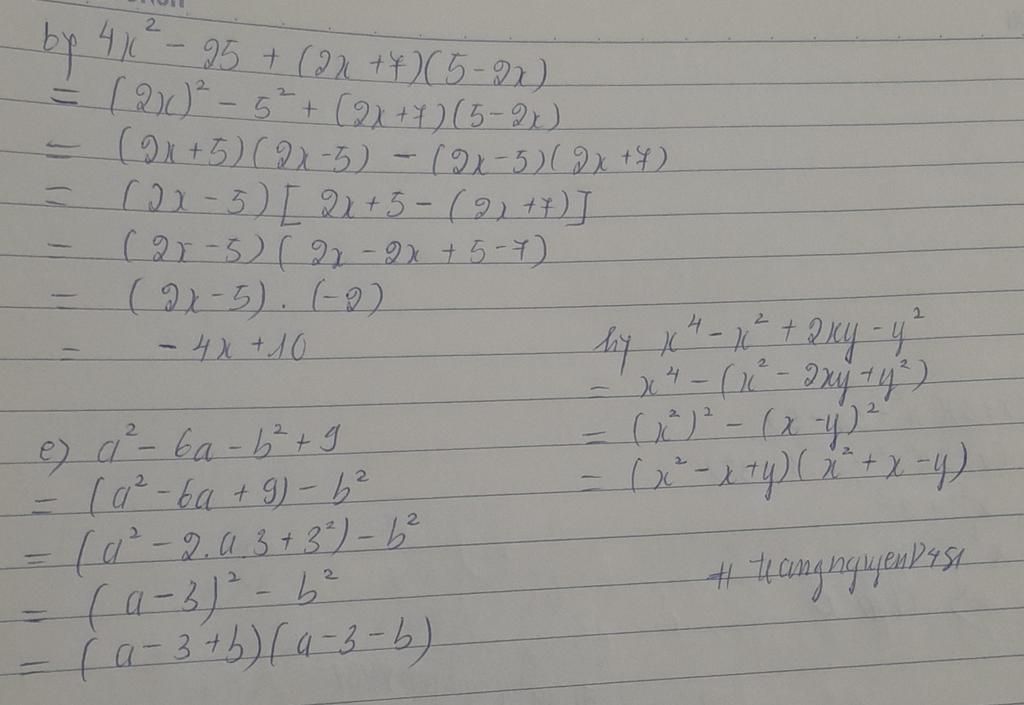 b, 4x² - 25 + (2x + 7)(5 - 2x)
= (2x)² - 5² + (2x+7)(5-2x)
= (2x+5)(2x-5) - (2x-5)(2x+7)
= (2x-5)[2x+5-(2x+7)]
= (2x-5)(2x-2x+5-7)
= (2x-5).(-2)
= -4x+10
e) a² - 6a - b² + 9
= (a² - 6a + 9) - b²
= (a² - 2.a.3 + 3²) - b²
= (a-3)² - b²
= (a-3+b)(a-3-b)
h, x⁴ - x² + 2xy - y²
= x⁴ - (x² - 2xy + y²)
= (x²)² - (x-y)²
= (x² - x + y)(x² + x - y)